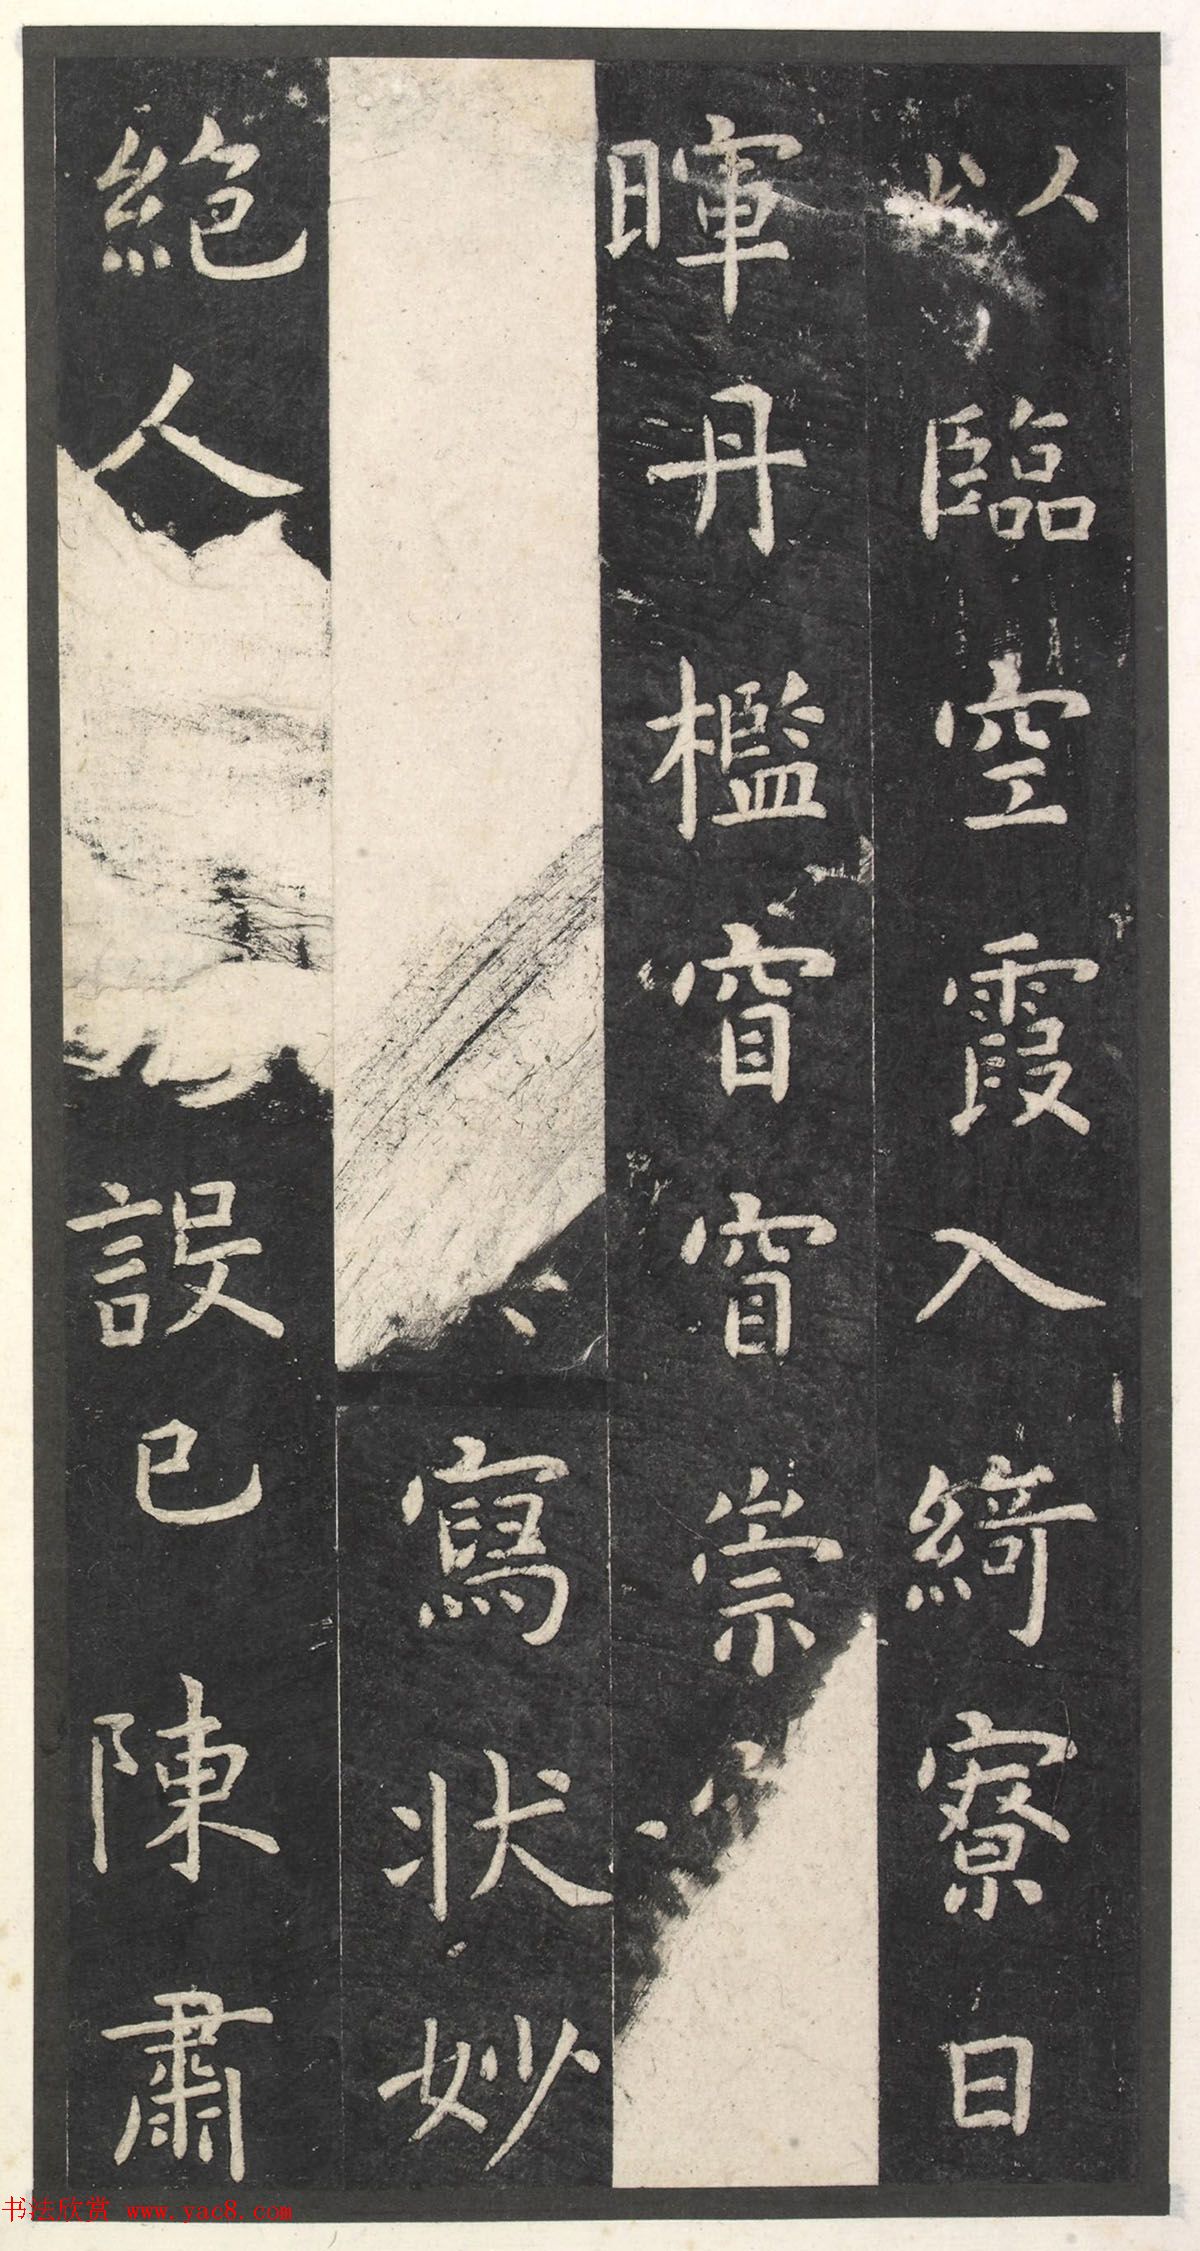 臨空霞入綺寮日
暉丹檻窅窅崇
寫狀妙
絶人誤已陳肅
书法欣赏 www.yac8.com